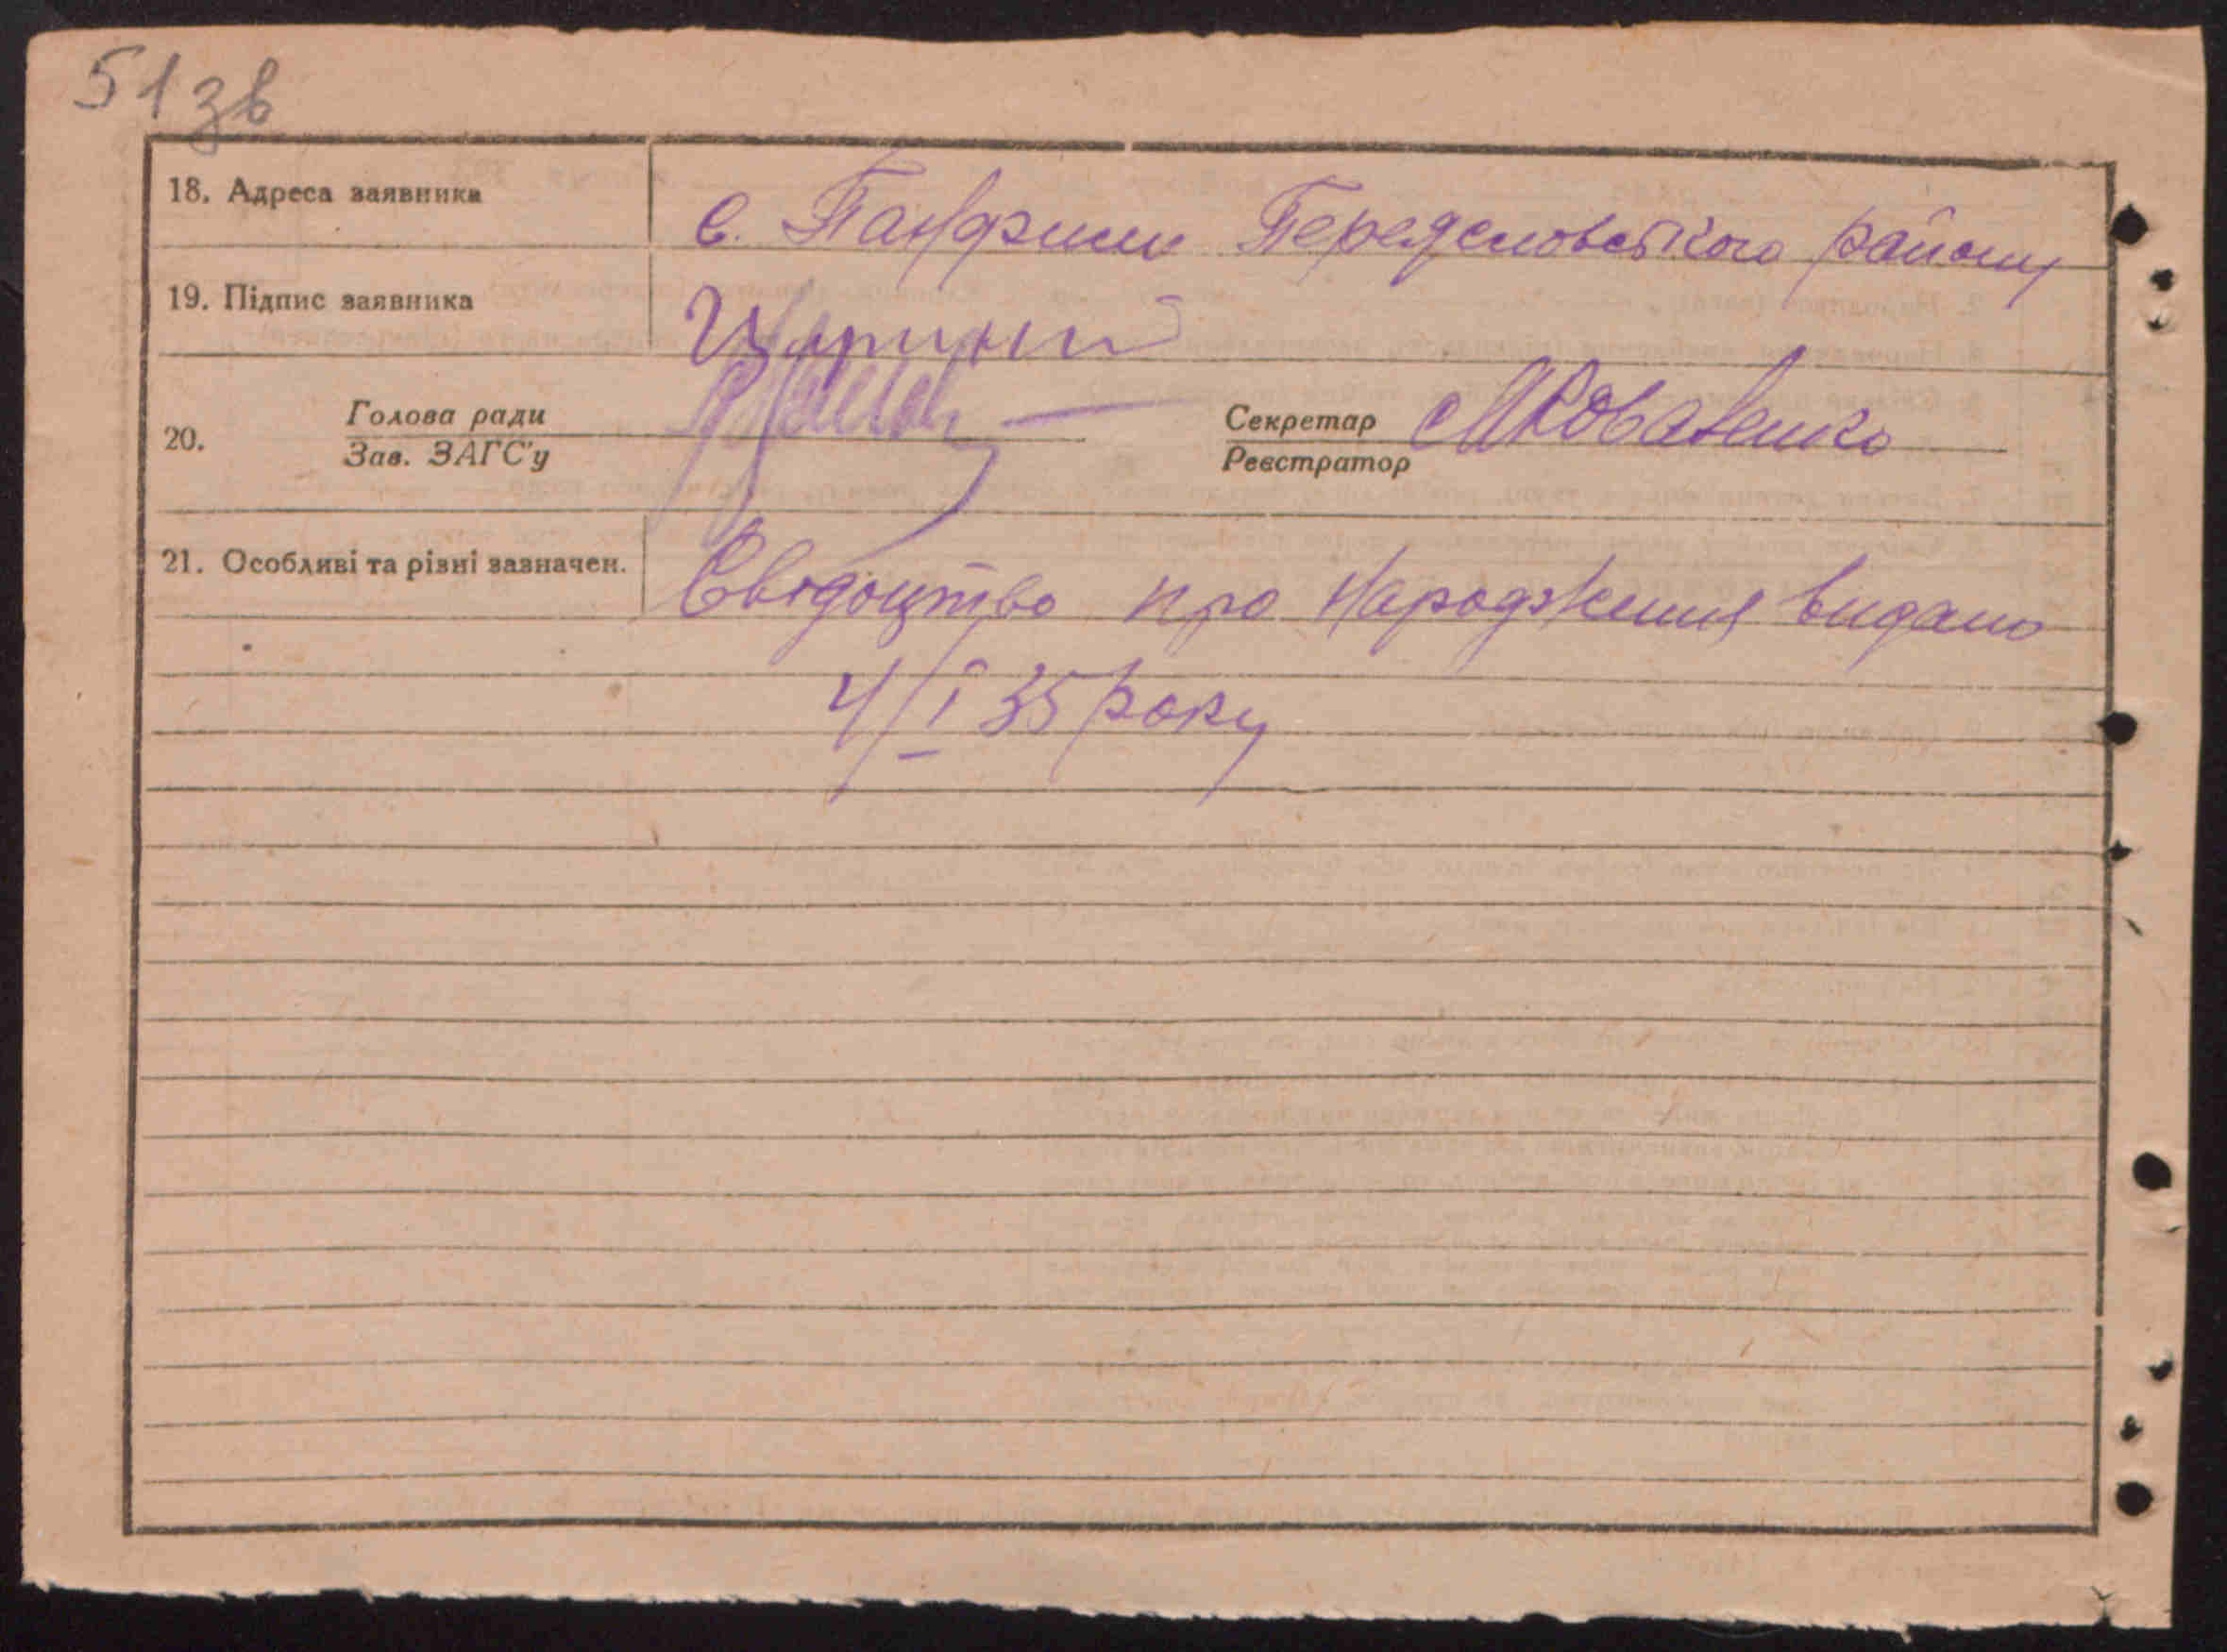 51зв
18. Адреса заявника с. Панфили Переяславського району
19. Підпис заявника
20. Голова ради Секретар МКоваленко
Зав. ЗАГС'у Реєстратор
21. Особливі та різні зазначен. Свідоцтво про народження видано
4/І 35 року